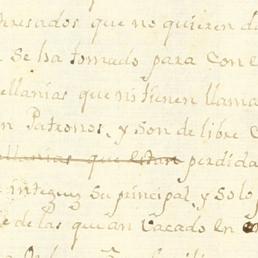 teresados que no quieren da
se ha tomado para con e
ellanias que ni tienen llama
n Patronos, y son de libre C
ellanias que estan perdida
integuy su principal, y solo
e de las que an vacado en